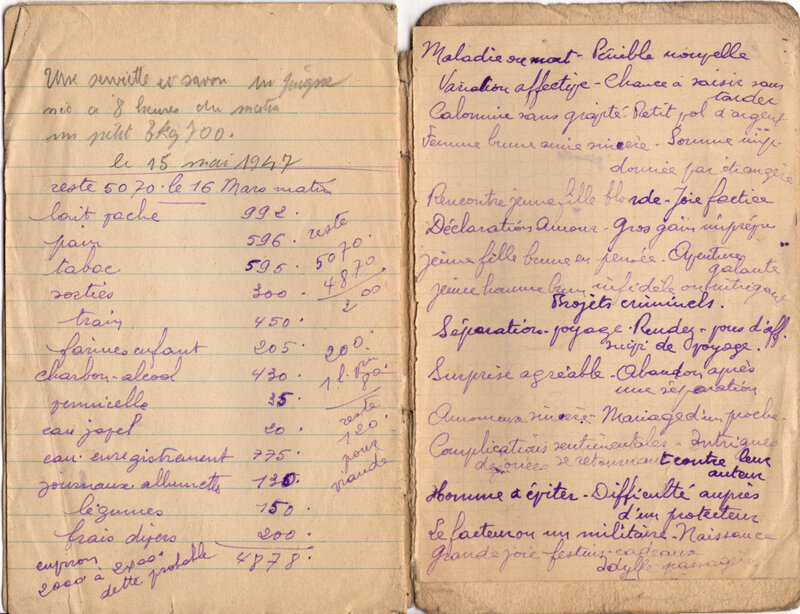 Une serviette et savon un peigne
née à 8 heures du matin
un petit 3kg700.
le 15 mai 1947
reste 5070. le 16 Mars matin
lait vache 992.
pain 596.
tabac 595.
sorties 300.
train 450.
farines enfant 205.
charbon-alcool 430.
vermicelle 35
eau javel 20.
eau. enregistrement 775.
journaux allumettes
légumes 150
frais divers 200.
4878.
environ
2000 à
dette probable
reste
5070.
4870
200
200.
1 l. vin
80.
reste
120.
pour
viande
Maladie ou mort - Pénible nouvelle
Variation affective - Chance à saisir sans
tarder
Calomnie sans gravité. Petit vol d'argent
Femme brune amie sincère - Somme imp.
donnée par étrangère
Rencontre jeune fille blonde - Joie factice
Déclaration Amour - Gros gain imprévu
jeune fille brune en pensée - Aventure
galante
jeune homme brun infidèle ou intrigant
Projets criminels.
Séparation - voyage. Rendez-vous d'aff.
suivi de voyage.
Surprise agréable - Abandon après
une séparation
Amoureux sincère - Mariage d'un proche -
Complications sentimentales - Intrigues
déjouées se retournant contre leur
auteur
Homme à éviter - Difficulté auprès
d'un protecteur
Le facteur ou un militaire - Naissance
Grande joie - festins - cadeaux
Idylle passagère